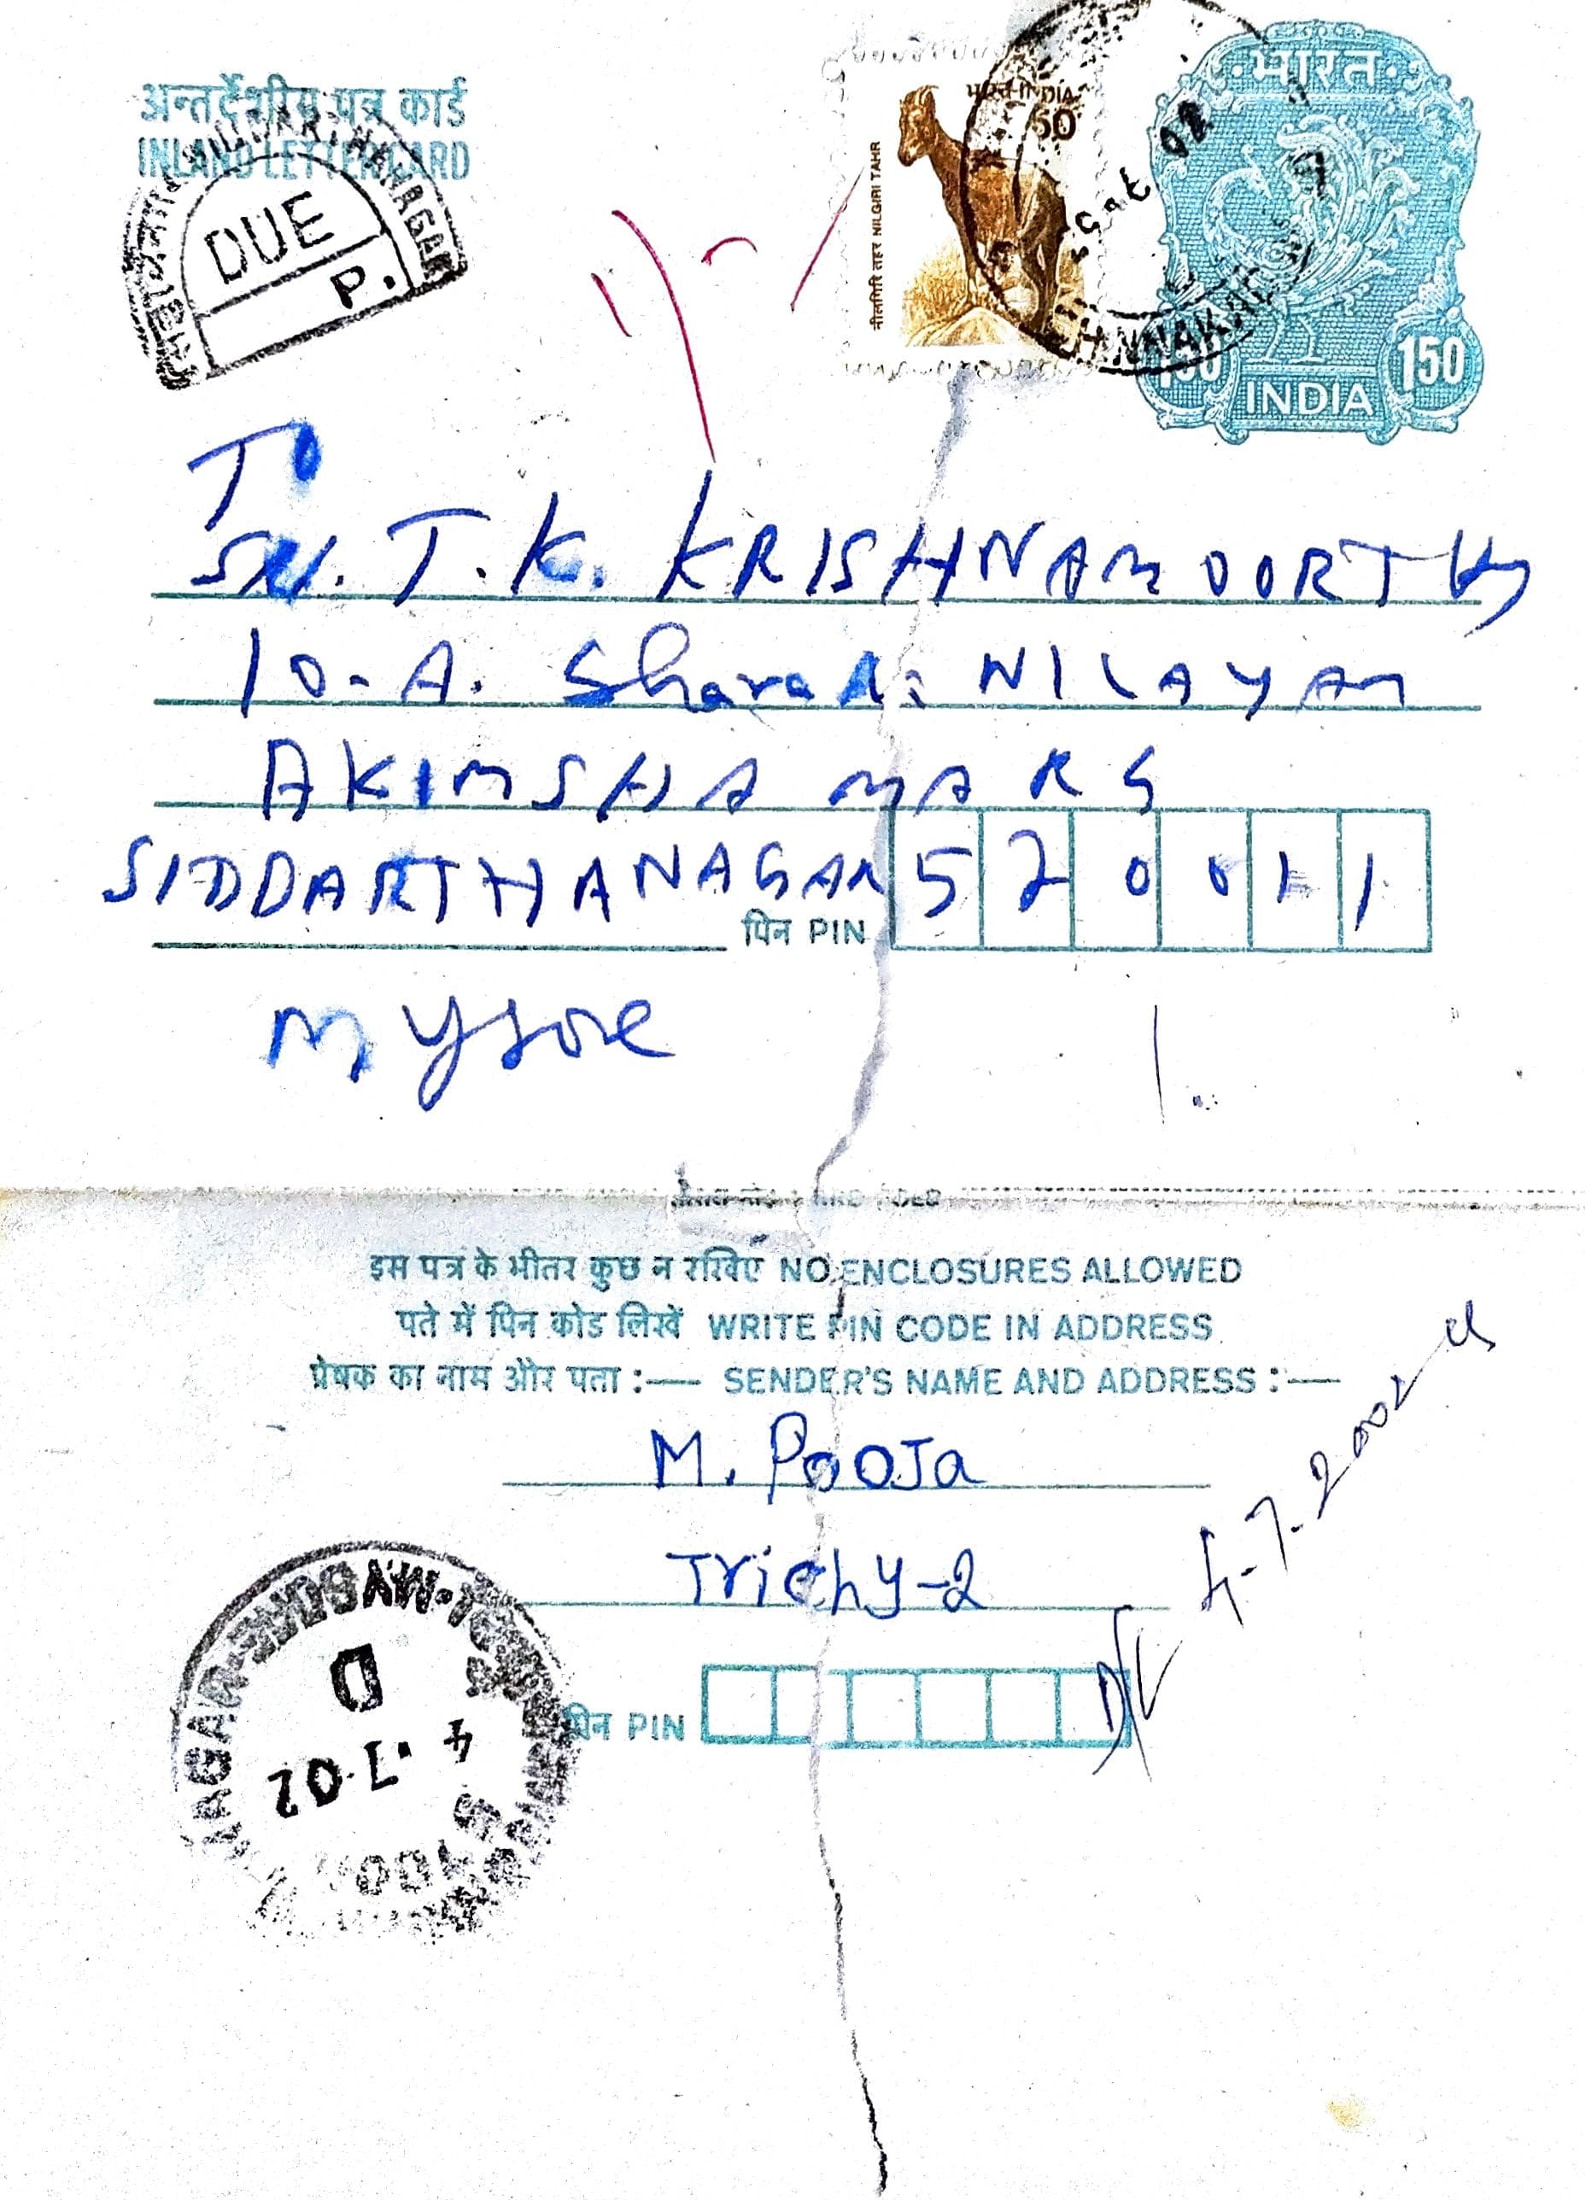 अन्तर्देशीय पत्र कार्ड
INLAND LETTER CARD
DUE
P.
भारत INDIA
50
नीलगिरि तहर NILGIRI TAHR
भारत
150 150
INDIA
To
Sri. T. K. KRISHNAMOORTHY
10-A. Sharada NILAYAM
AKIMSHA MARG
SIDDARTHANAGAR
पिन PIN 520011
Mysore
इस पत्र के भीतर कुछ न रखिए NO ENCLOSURES ALLOWED
पते में पिन कोड लिखें WRITE PIN CODE IN ADDRESS
प्रेषक का नाम और पता :— SENDER'S NAME AND ADDRESS :—
M. POOJa
Trichy-2
4-7-2002
पिन PIN
D
4.7.02